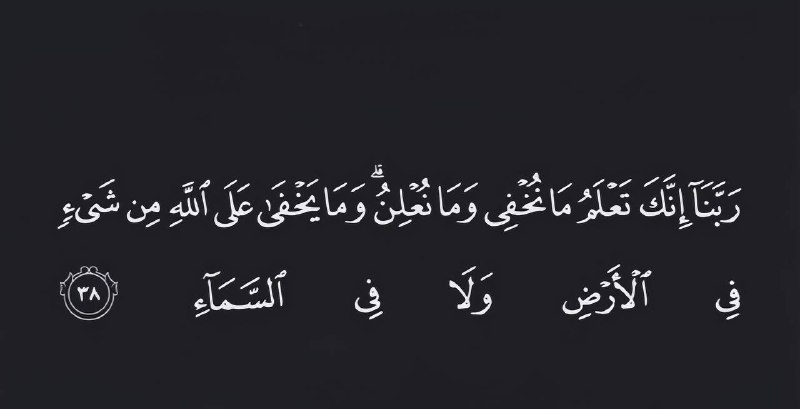 رَبَّنَآ إِنَّكَ تَعۡلَمُ مَا نُخۡفِي وَمَا نُعۡلِنُۗ وَمَا يَخۡفَىٰ عَلَى ٱللَّهِ مِن شَيۡءٖ
فِي ٱلۡأَرۡضِ وَلَا فِي ٱلسَّمَآءِ ٣٨